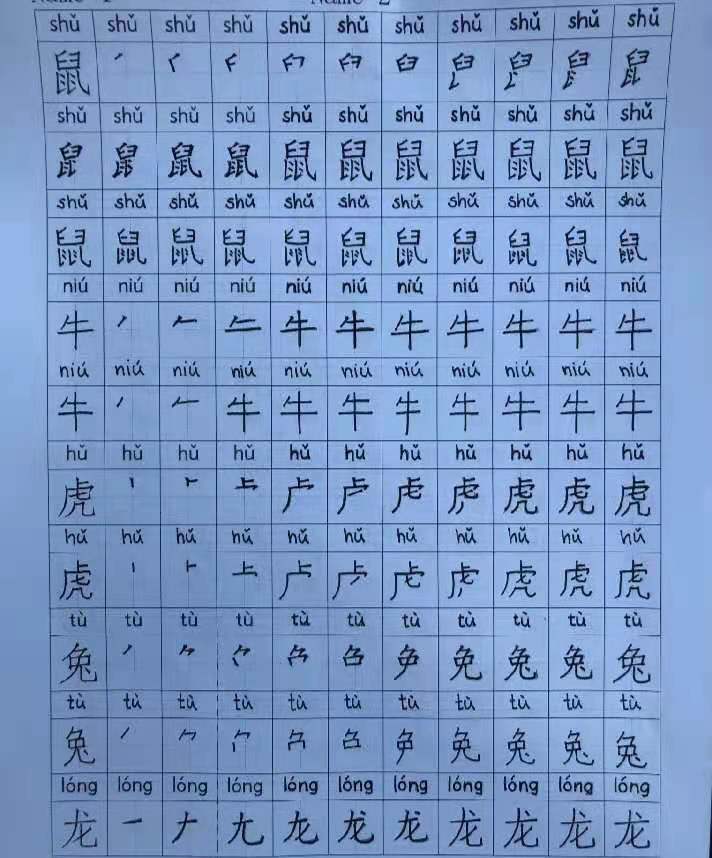 shǔ shǔ shǔ shǔ shǔ shǔ shǔ shǔ shǔ shǔ shǔ
鼠
shǔ shǔ shǔ shǔ shǔ shǔ shǔ shǔ shǔ shǔ shǔ
鼠 鼠 鼠 鼠 鼠 鼠 鼠 鼠 鼠
shǔ shǔ shǔ shǔ shǔ shǔ shǔ shǔ shǔ shǔ shǔ
鼠 鼠 鼠 鼠 鼠 鼠 鼠 鼠 鼠 鼠 鼠
niú niú niú niú niú niú niú niú niú niú niú
牛 丿 𠂉 牛 牛 牛 牛 牛 牛 牛
niú niú niú niú niú niú niú niú niú niú niú
牛 丿 𠂉 牛 牛 牛 牛 牛 牛 牛 牛
hǔ hǔ hǔ hǔ hǔ hǔ hǔ hǔ hǔ hǔ hǔ
虎 丨 ⺊ 虎 虎 虎
hǔ hǔ hǔ hǔ hǔ hǔ hǔ hǔ hǔ hǔ hǔ
虎 丨 ⺊ 虎 虎 虎
tù tù tù tù tù tù tù tù tù tù tù
兔 丿 免 兔 兔 兔
tù tù tù tù tù tù tù tù tù tù tù
兔 丿 免 兔 兔 兔
lóng lóng lóng lóng lóng lóng lóng lóng lóng lóng lóng
龙 一 ナ 尢 龙 龙 龙 龙 龙 龙 龙